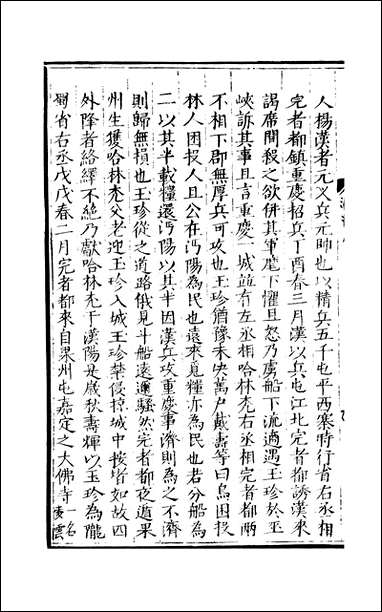 人楊漢者元义兵元帥也以精兵五千屯平西寨時行省右丞相
完者都鎮重慶招兵丁酉春三月漢以兵屯江北完者都誘漢來
謁席間殺之欲併其軍麾下懼且怒乃虜船下流適遇玉珍於巫
峽訴其事且言重慶一城並有左丞相哈林禿右丞相完者都兩
不相下郡無厚兵可攻也玉珍猶豫未决萬戸戴壽等曰烏困投
林人困投人且公在沔陽為民也遠來覓糧亦為民也若分船為
二以其半載糧還沔陽以其半因漢兵攻重慶事濟則為之不濟
則歸無損也玉珍從之道路俄見斗船遠邇騷然完者都夜遁果
州生獲哈林禿父老迎玉珍入城玉珍禁侵掠城中按堵如故四
外降者絡繹不絕乃獻哈林禿于漢陽是歲秋壽輝以玉珍為隴
蜀省右丞戊戌春二月完者都來自果州屯嘉定之大佛寺一名凌雲